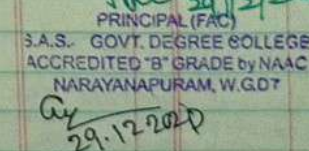 PRINCIPAL (FAC)
S.A.S. GOVT. DEGREE COLLEGE
ACCREDITED "B" GRADE by NAAC
NARAYANAPURAM, W.G.DT
29.12.2020